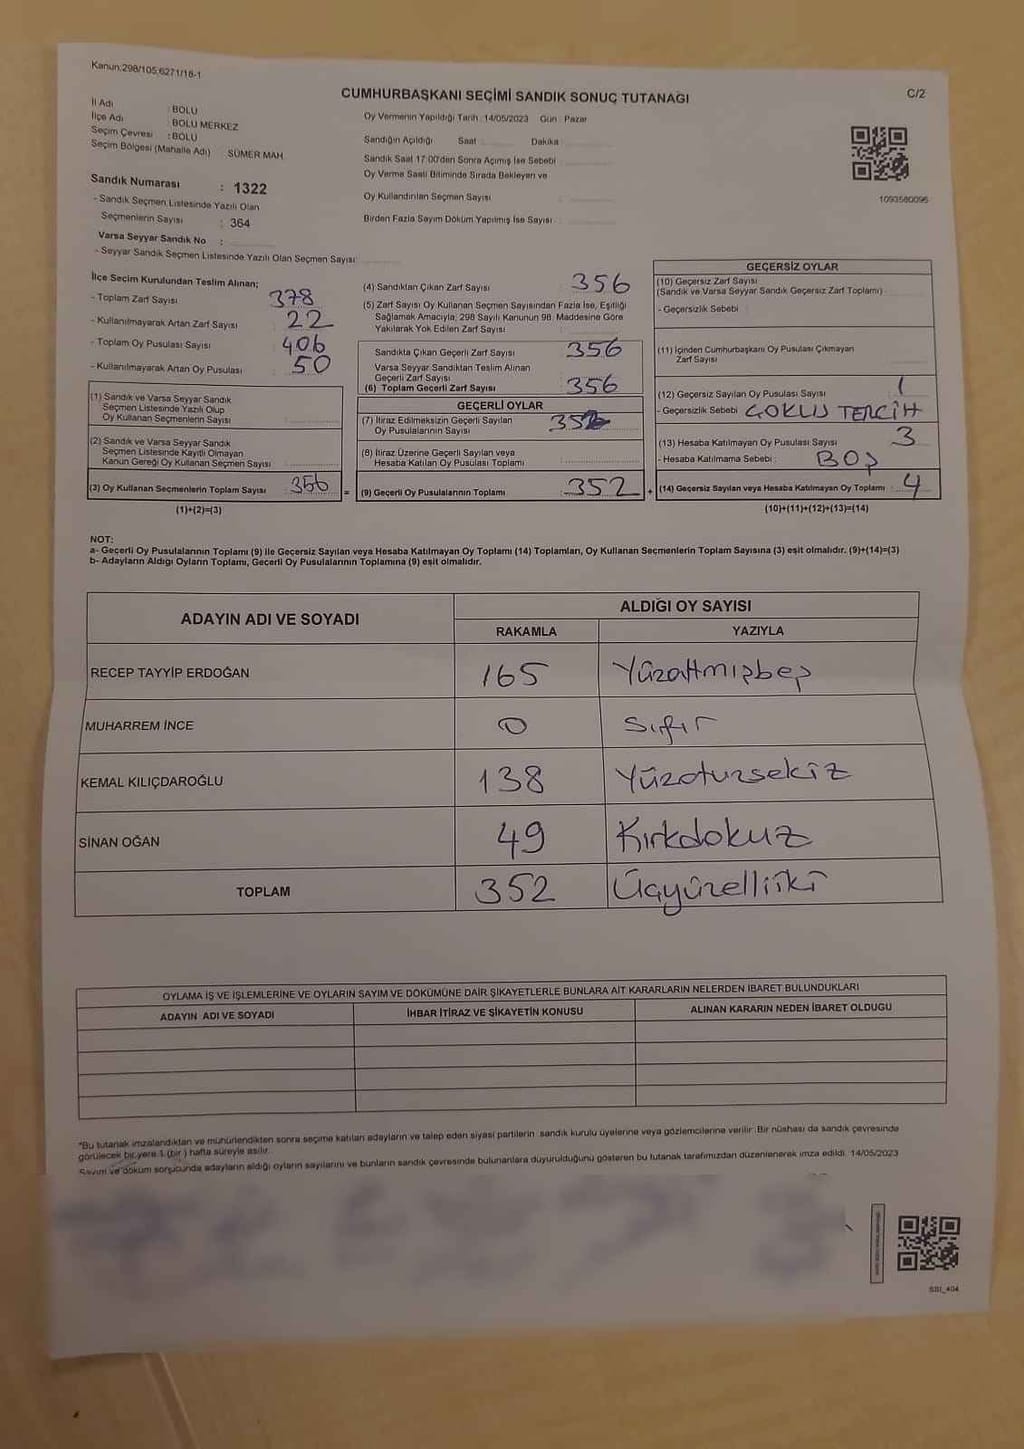 Kanun:298/105;6271/18-1
CUMHURBAŞKANI SEÇİMİ SANDIK SONUÇ TUTANAĞI
C/2
İl Adı : BOLU
İlçe Adı : BOLU MERKEZ
Seçim Çevresi : BOLU
Seçim Bölgesi (Mahalle Adı) SÜMER MAH
Oy Vermenin Yapıldığı Tarih :14/05/2023 Gün : Pazar
Sandığın Açıldığı Saat Dakika :
Sandık Saat 17:00'den Sonra Açımış İse Sebebi :
Oy Verme Saati Bitiminde Sırada Bekleyen ve
Oy Kullandırılan Seçmen Sayısı
Birden Fazla Sayım Döküm Yapılmış İse Sayısı :
1093580096
Sandık Numarası : 1322
- Sandık Seçmen Listesinde Yazılı Olan
Seçmenlerin Sayısı : 364
Varsa Seyyar Sandık No :
- Seyyar Sandık Seçmen Listesinde Yazılı Olan Seçmen Sayısı
İlçe Secim Kurulundan Teslim Alınan;
- Toplam Zarf Sayısı 378
- Kullanılmayarak Artan Zarf Sayısı : 22
- Toplam Oy Pusulası Sayısı 406
- Kullanılmayarak Artan Oy Pusulası 50
(1) Sandık ve Varsa Seyyar Sandık
Seçmen Listesinde Yazılı Olup
Oy Kullanan Seçmenlerin Sayısı
(2) Sandık ve Varsa Seyyar Sandık
Seçmen Listesinde Kayıtlı Olmayan
Kanun Gereği Oy Kullanan Seçmen Sayısı
(3) Oy Kullanan Seçmenlerin Toplam Sayısı 356 =
(1)+(2)=(3)
(4) Sandıktan Çıkan Zarf Sayısı : 356
(5) Zarf Sayısı Oy Kullanan Seçmen Sayısından Fazla İse, Eşitliği
Sağlamak Amacıyla, 298 Sayılı Kanunun 98. Maddesine Göre
Yakılarak Yok Edilen Zarf Sayısı :
Sandıkta Çıkan Geçerli Zarf Sayısı : 356
Varsa Seyyar Sandıktan Teslim Alınan
Geçerli Zarf Sayısı
(6) Toplam Geçerli Zarf Sayısı : 356
GEÇERLİ OYLAR
(7) İtiraz Edilmeksizin Geçerli Sayılan
Oy Pusulalarının Sayısı 352
(8) İtiraz Üzerine Geçerli Sayılan veya
Hesaba Katılan Oy Pusulası Toplamı
(9) Geçerli Oy Pusulalarının Toplamı : 352 +
GEÇERSİZ OYLAR
(10) Geçersiz Zarf Sayısı
(Sandık ve Varsa Seyyar Sandık Geçersiz Zarf Toplamı)
- Geçersizlik Sebebi :
(11) İçinden Cumhurbaşkanı Oy Pusulası Çıkmayan
Zarf Sayısı
(12) Geçersiz Sayılan Oy Pusulası Sayısı : 1
- Geçersizlik Sebebi : ÇOKLU TERCİH
(13) Hesaba Katılmayan Oy Pusulası Sayısı : 3
- Hesaba Katılmama Sebebi : BOŞ
(14) Geçersiz Sayılan veya Hesaba Katılmayan Oy Toplamı : 4
(10)+(11)+(12)+(13)=(14)
NOT:
a- Geçerli Oy Pusulalarının Toplamı (9) ile Geçersiz Sayılan veya Hesaba Katılmayan Oy Toplamı (14) Toplamları, Oy Kullanan Seçmenlerin Toplam Sayısına (3) eşit olmalıdır. (9)+(14)=(3)
b- Adayların Aldığı Oyların Toplamı, Geçerli Oy Pusulalarının Toplamına (9) eşit olmalıdır.
ADAYIN ADI VE SOYADI ALDIĞI OY SAYISI
RAKAMLA YAZIYLA
RECEP TAYYİP ERDOĞAN 165 Yüzaltmışbeş
MUHARREM İNCE 0 Sıfır
KEMAL KILIÇDAROĞLU 138 Yüzotuzsekiz
SİNAN OĞAN 49 Kırkdokuz
TOPLAM 352 Üçyüzelliiki
OYLAMA İŞ VE İŞLEMLERİNE VE OYLARIN SAYIM VE DÖKÜMÜNE DAİR ŞİKAYETLERLE BUNLARA AİT KARARLARIN NELERDEN İBARET BULUNDUKLARI
ADAYIN ADI VE SOYADI İHBAR İTİRAZ VE ŞİKAYETİN KONUSU ALINAN KARARIN NEDEN İBARET OLDUĞU
*Bu tutanak imzalandıktan ve mühürlendikten sonra seçime katılan adayların ve talep eden siyasi partilerin sandık kurulu üyelerine veya gözlemcilerine verilir. Bir nüshası da sandık çevresinde
görülecek bir yere 1 (bir) hafta süreyle asılır.
Sayım ve döküm sonucunda adayların aldığı oyların sayılarını ve bunların sandık çevresinde bulunanlara duyurulduğunu gösteren bu tutanak tarafımızdan düzenlenerek imza edildi. 14/05/2023
SSI_404